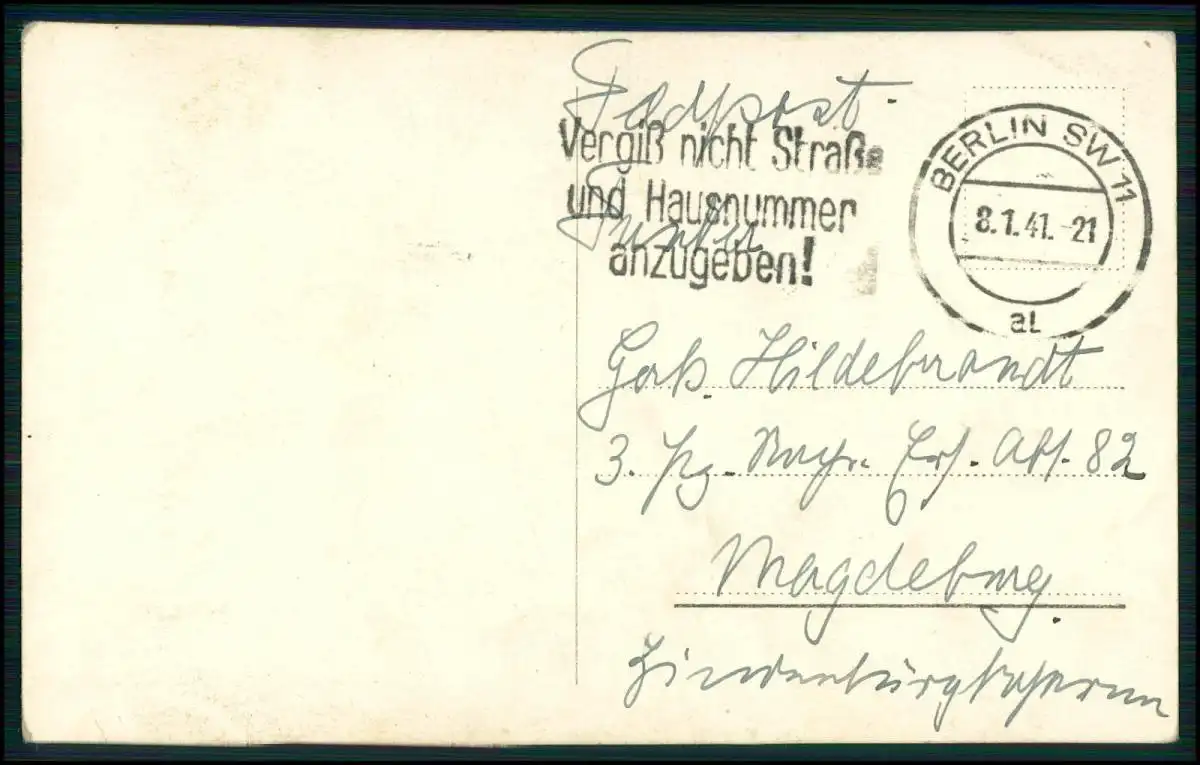 Feldpost.
Vergiß nicht Straße
und Hausnummer
anzugeben!
BERLIN SW 11
8.1.41.-21
al
Hildebrandt
3. Erf. Abt. 82
Magdeburg.
Hindenburgkaserne